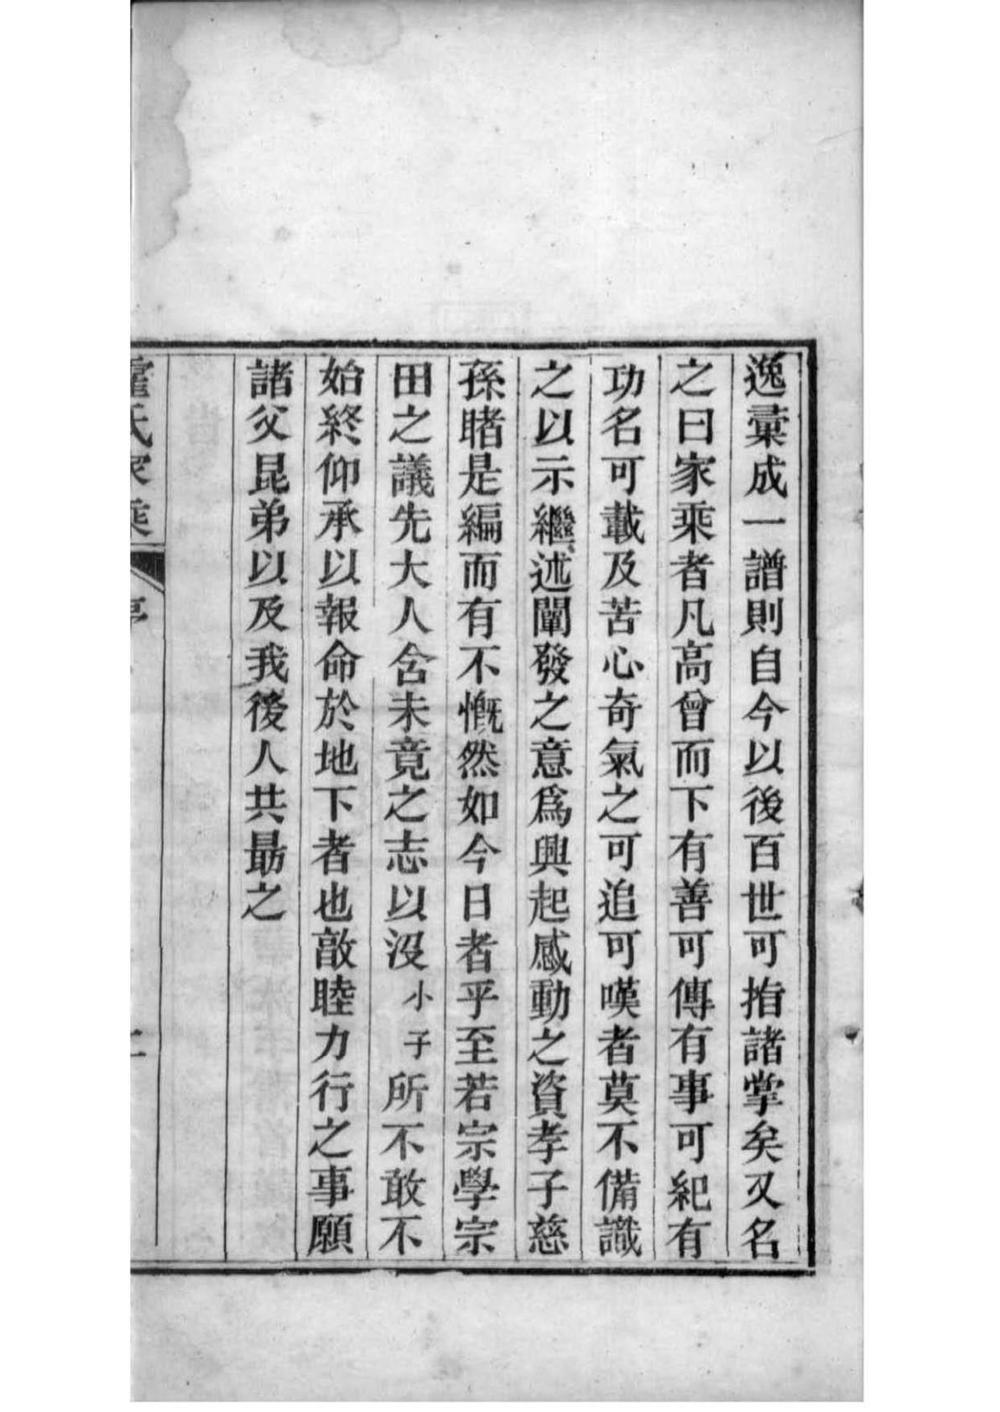 逸彙成一譜則自今以後百世可指諸掌矣又名
之曰家乘者凡高曾而下有善可傳有事可紀有
功名可載及苦心奇氣之可追可嘆者莫不備識
之以示繼述闡發之意爲興起感動之資孝子慈
孫睹是編而有不慨然如今日者乎至若宗學宗
田之議先大人含未竟之志以沒小子所不敢不
始終仰承以報命於地下者也敦睦力行之事願
諸父昆弟以及我後人共最之
霍氏家乘
序